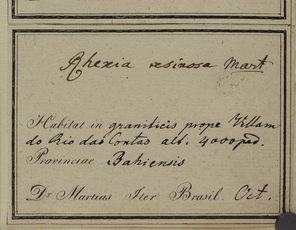 Rhexia resinosa Mart
Habitat in graniticis prope Villam
do Rio das Contas alt. 4000 ped.
Provinciae Bahiensis
Dr Martius Iter Brasil. Oct.